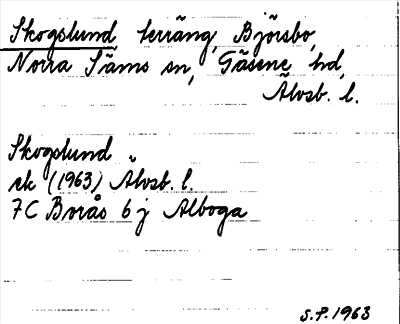 Skogslund, terräng, Björsbo,
Norra Säms sn, Gäsene hd,
Älvsb. l.
Skogslund
ek (1963) Älvsb. l.
7C Borås 6 j Alboga
S.F. 1963